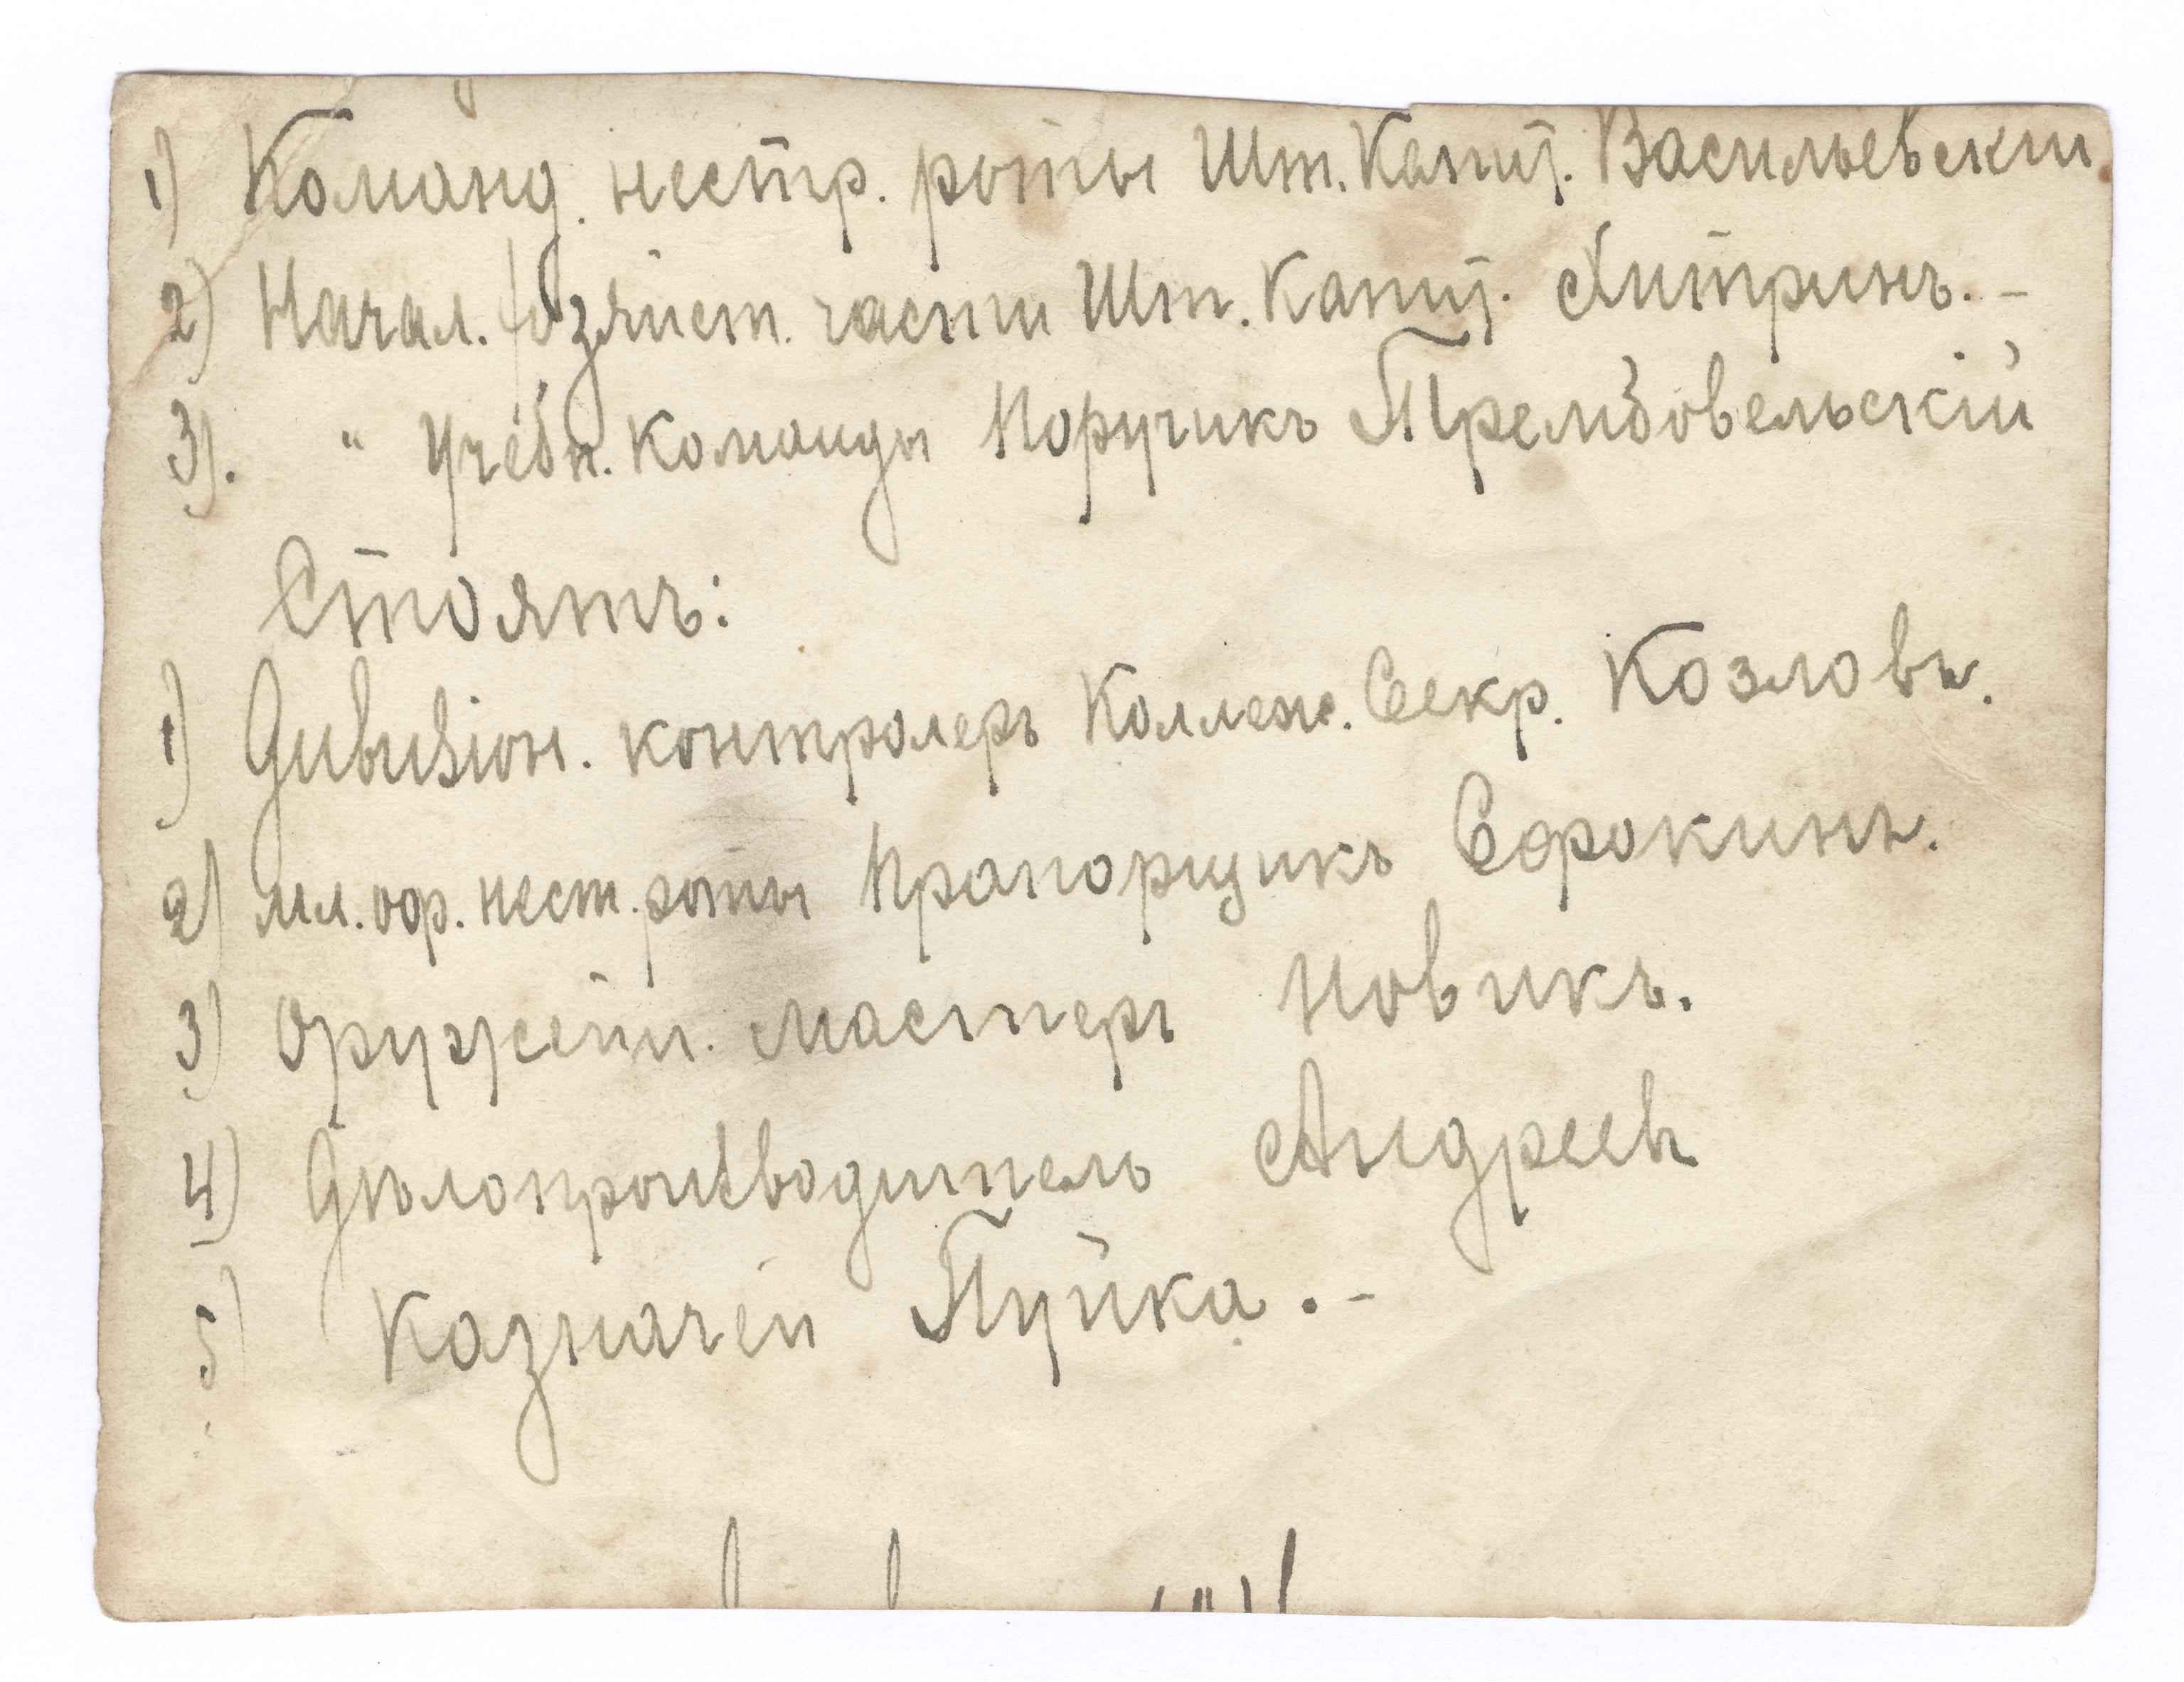 1) Команд. нестр. роты Шт. Капит. Васильевскій
2) Начал. Хозяйст. части Шт. Капит. Хитринъ. -
3). " Учебн. Команды Поручикъ Трембовельскій
Стоятъ:
1) Дивизіон. контролеръ Коллеж. Секр. Козловъ.
2) мл. оф. нест. роты Прапорщикъ Сорокинъ.
3) Оружейн. мастеръ Новикъ.
4) Дѣлопроизводитель Андреевъ
5) Казначей Пуйка. -